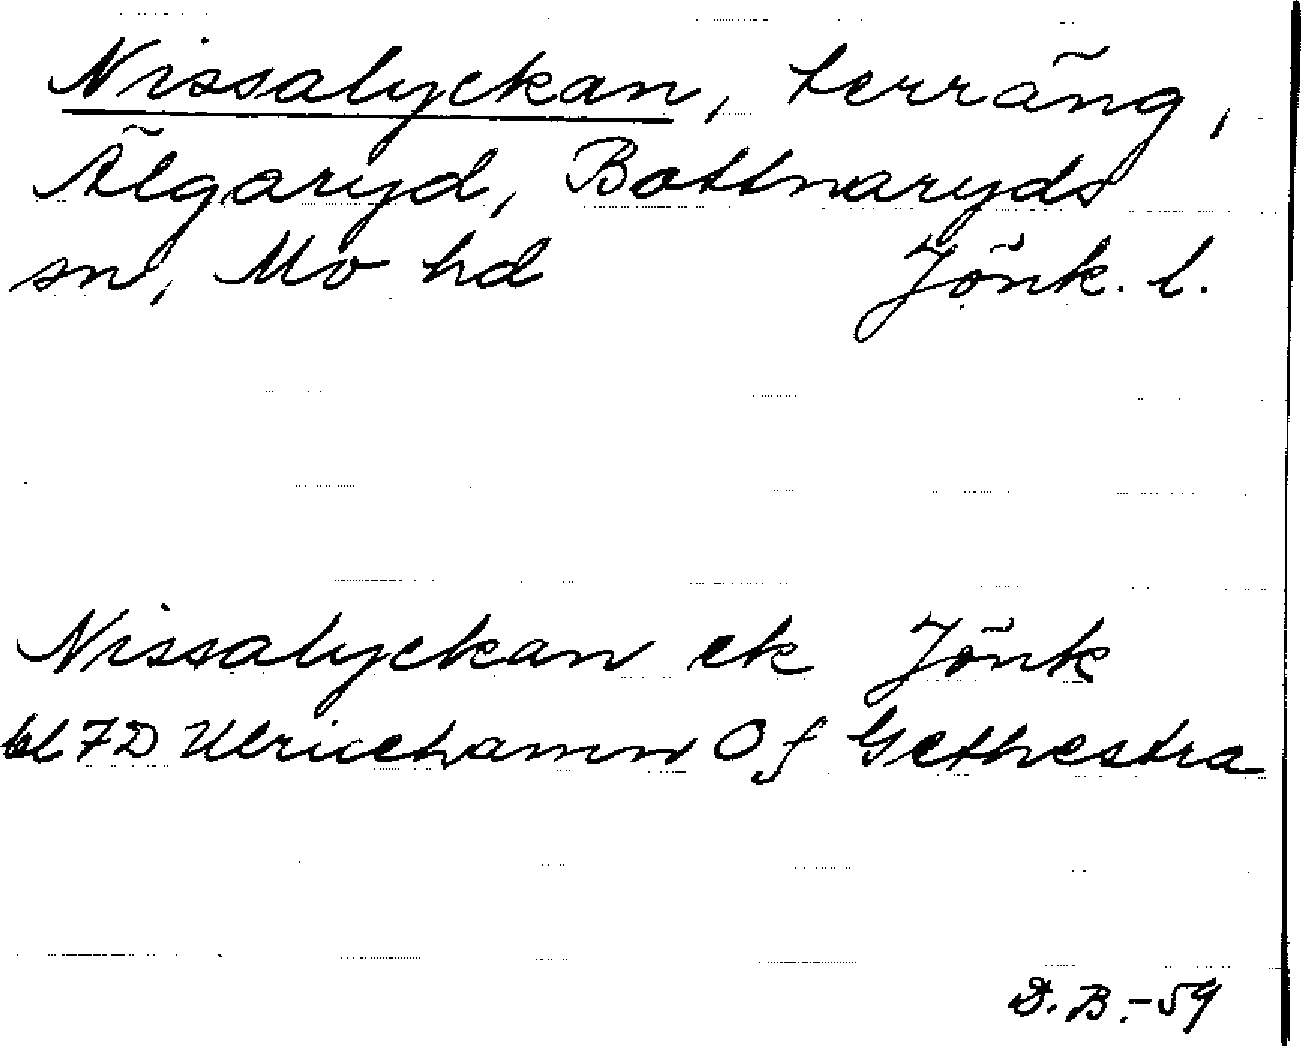 Nissalyckan, terräng,
Älgaryd, Bottnaryds
sn, Mo hd Jönk. l.
Nissalyckan ek Jönk
bl 7D Ulricehamn Of Gethestra
D. B. - 59